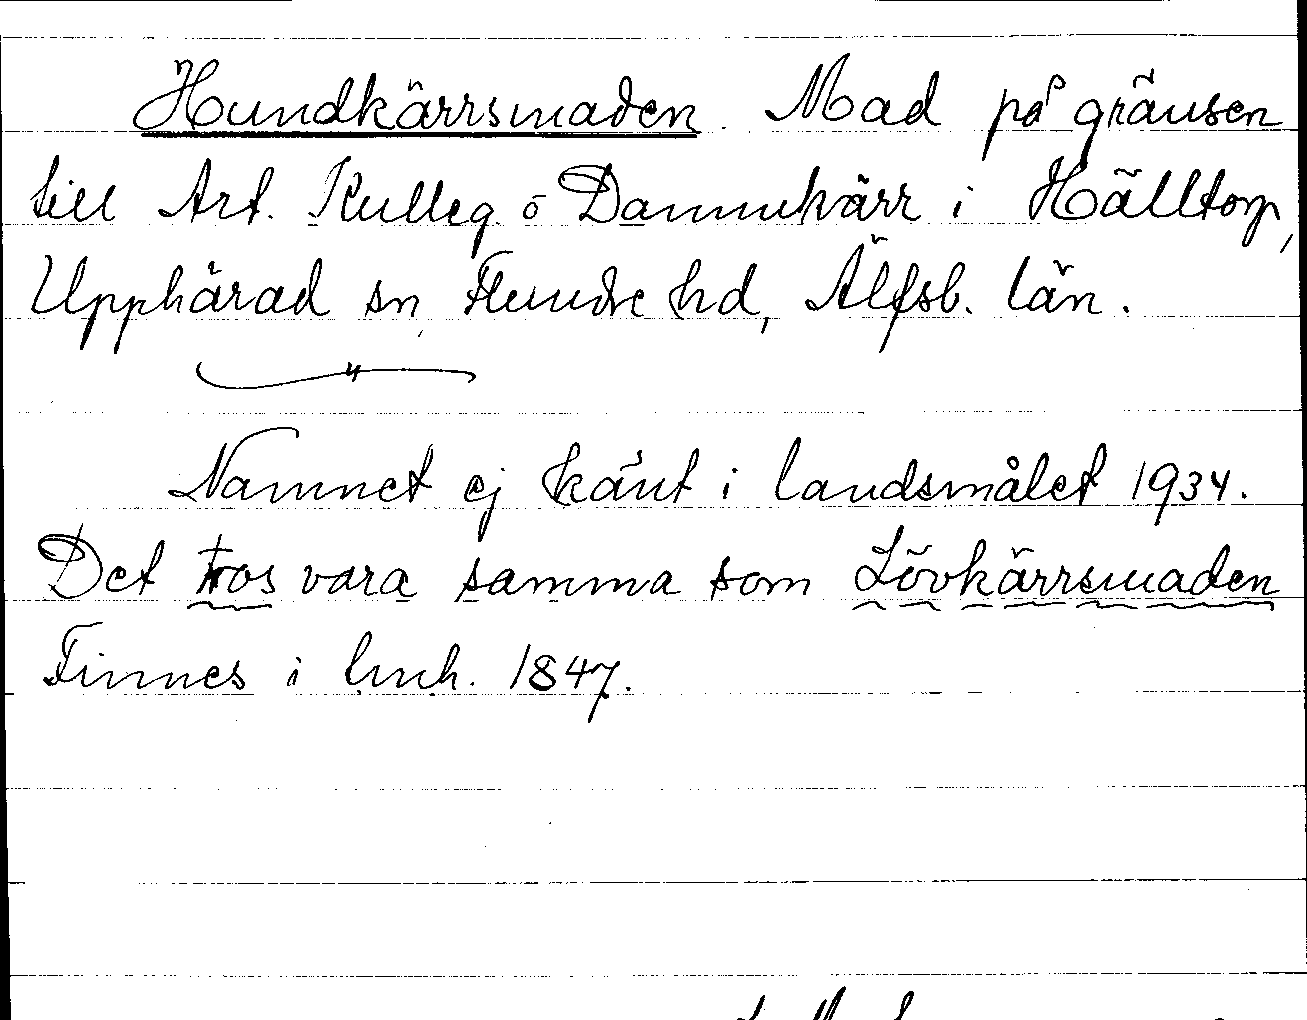 Hundkärrsmaden. Mad på gränsen
till Art. Kulleg. o Dannekärr i Hälltorp,
Upphärad sn, Flundre hd, Älfsb. län.
Namnet ej känt i landsmålet 1934.
Det tros vara samma som Lövkärrsmaden
Finnes i lmh. 1847.